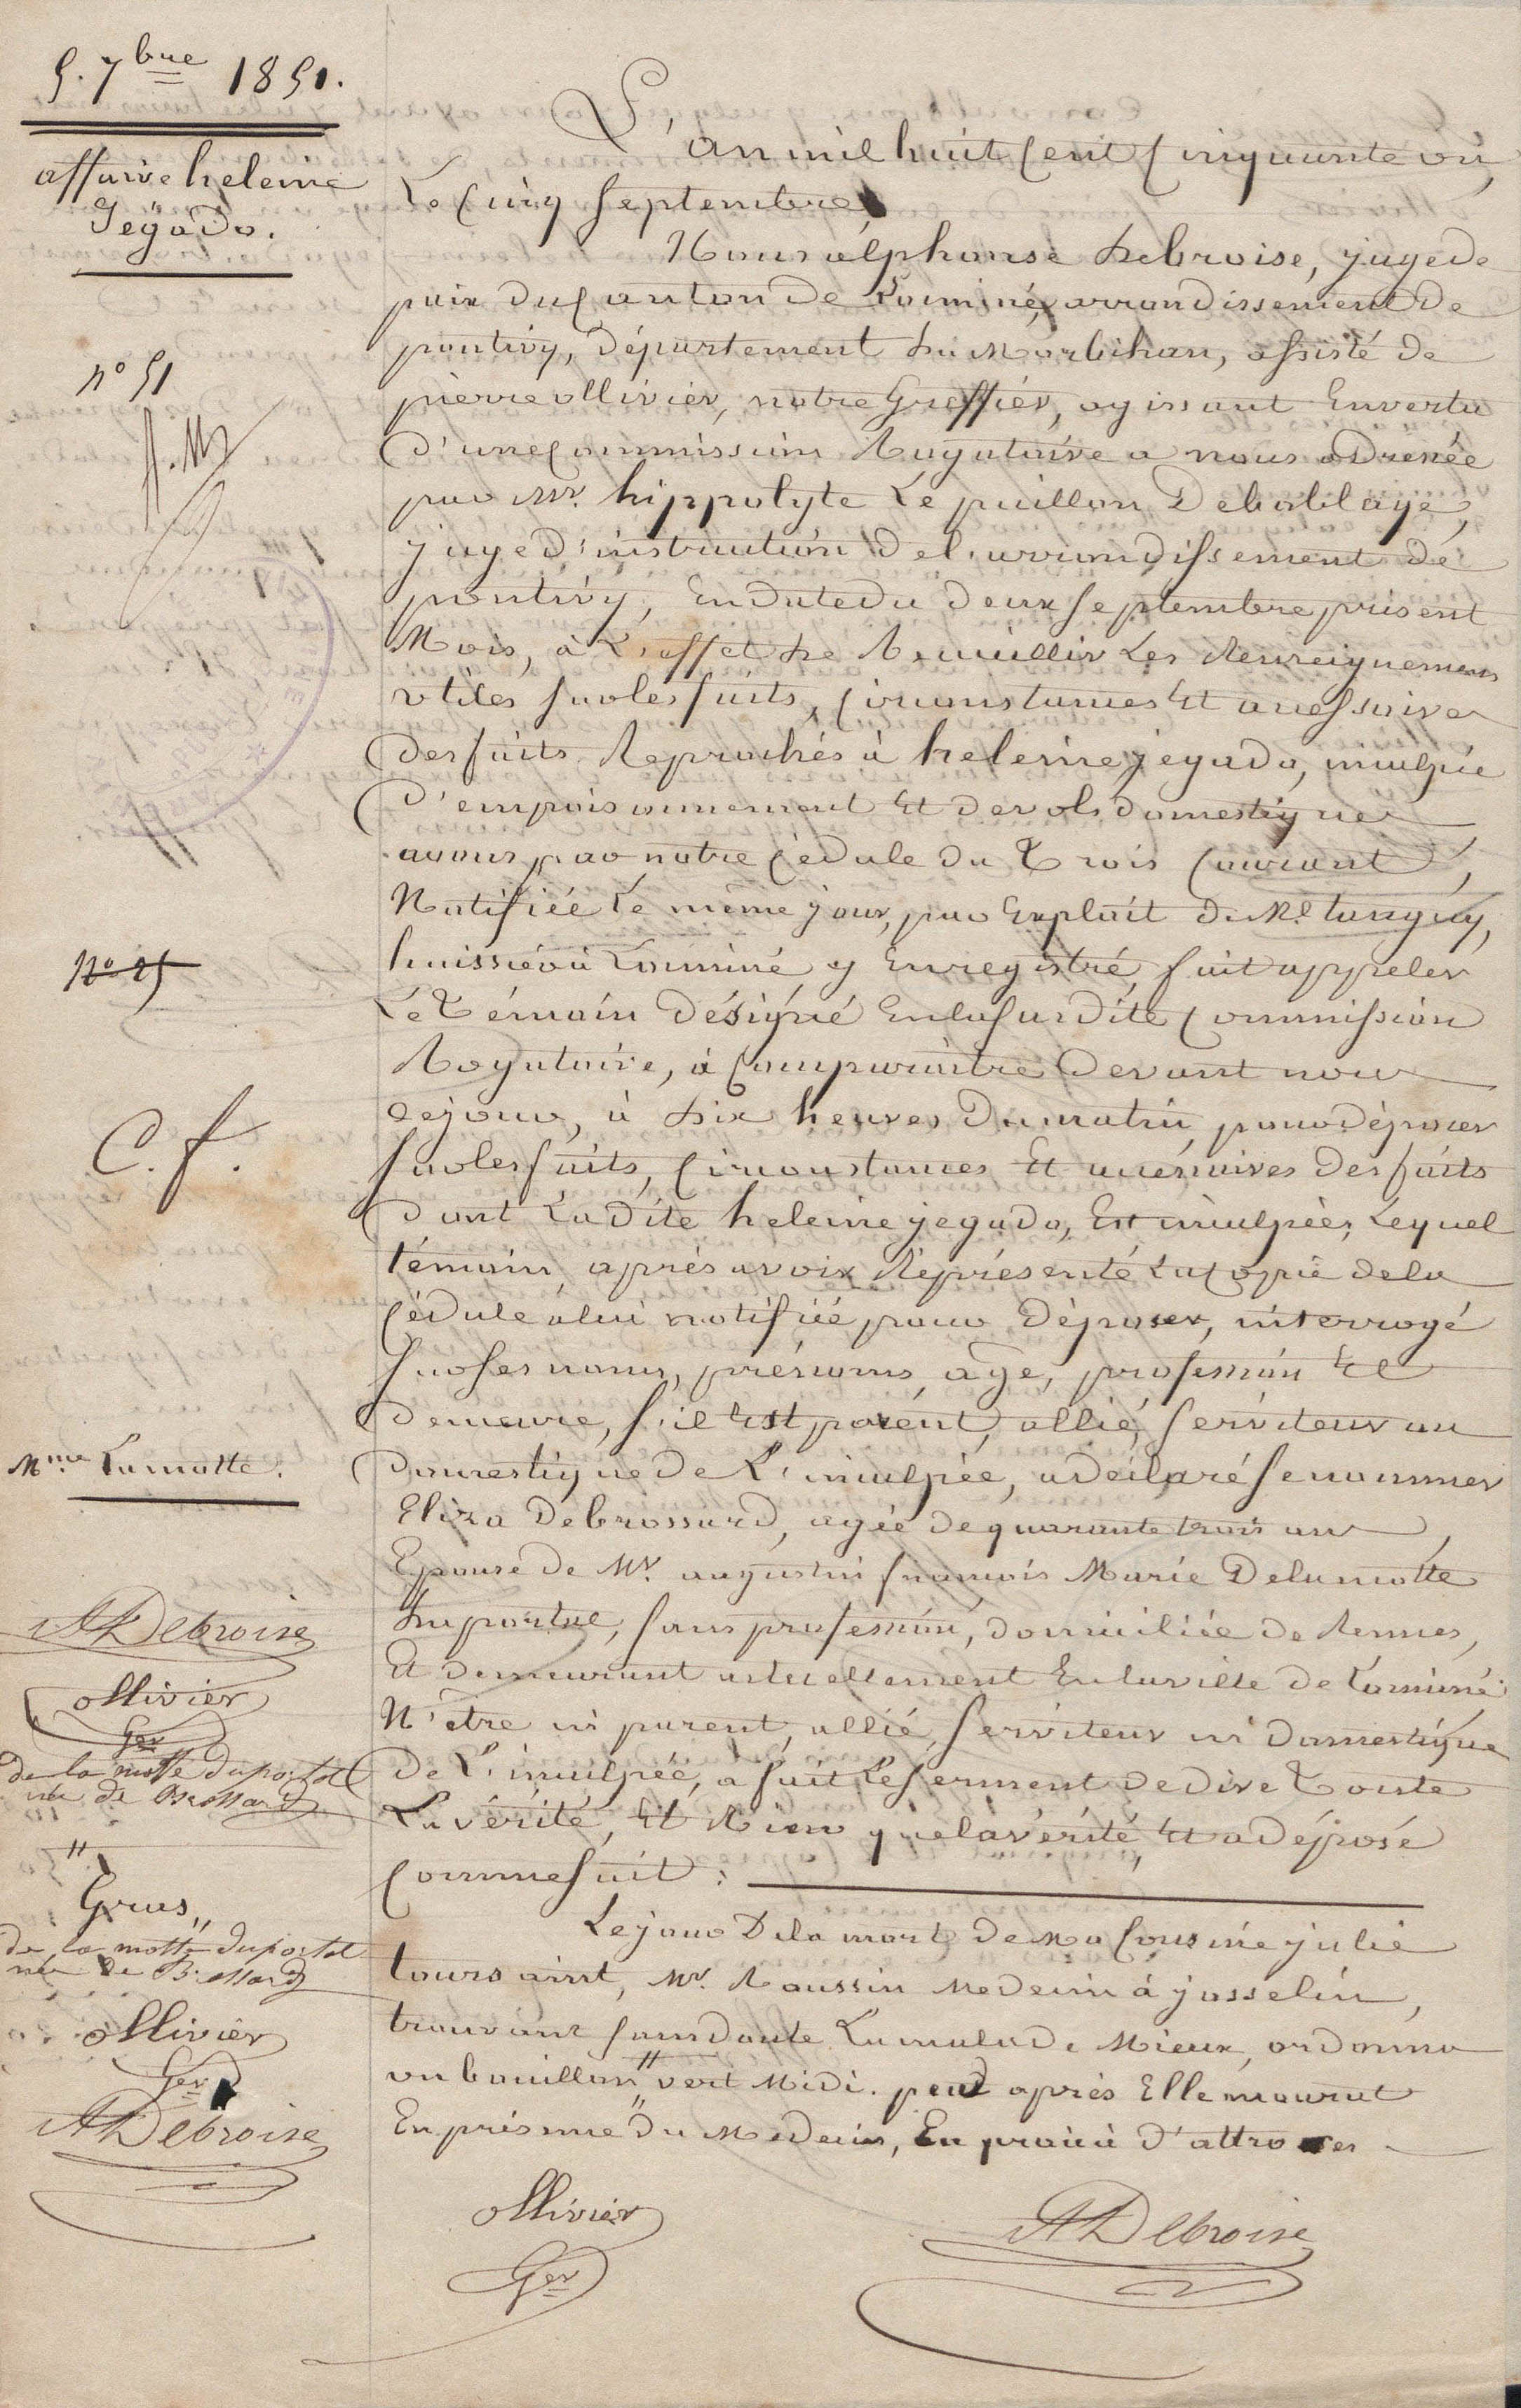 5. 7bre 1851.
affaire heleine
Jégado.
n° 51
N° 25
C. f.
Mme Lamotte.
ADebroise
ollivier
Ger
de la motte duportal
née de Brossard
"
Gras"
de la motte duportal
née de Brossard
ollivier
Ger
ADebroise
L'an mil huit cent cinquante un,
Le cinq septembre
Nous alphonse Debroise, juge de
paix du canton de Locminé, arrondissement de
pontivy, département du Morbihan, assisté de
pierre ollivier, notre Greffier, agissant En vertu
d'une commission Rogatoire a nous adressée
par Mr. hippolyte Le puillon Deboblaye,
juge d'instruction de l'arrondissement de
pontivy, En date du deux septembre présent
Mois, à L'effet de Recueillir Les Renseignemens
utiles sur les faits, circonstances Et accessoires
des faits Reprochés à heleine jegado, inculpée
d'empoisonnement Et de vols domestiques
avons, par notre cédule du Trois courant,
Notifiée Le même jour, par Exploit de Me tanguy,
huissier à Locminé, y Enregistré, fait appeler
Le Témoin désigné En la susdite commission
Rogatoire, à comparaitre devant nous
ce jour, à dix heures du matin, pour déposer
sur les faits, circonstances Et accéssoires des faits
dont La dite heleine jegado, Est inculpée; Lequel
témoin, après avoir Représenté La copie de la
cédule à lui notifiée pour déposer, interrogé
sur ses noms, prénoms, age, profession Et
demeure, s'il Est parent, allié, serviteur ou
domestique de L'inculpée, a déclaré se nommer
Eliza Debrossard, agée de quarante trois ans,
Epouse de Mr. augustin francois Marie Delamotte
duportal, sans profession, domiciliée de Rennes,
Et demeurant actuellement En la ville de Locminé
N'être ni parent, allié, serviteur ni domestique
de L'inculpée, a fait Le serment de dire Toute
La vérité, Et Rien que la vérité, Et a déposé
comme suit :
Le jour De la mort de Ma cousine julie
toursaint, Mr. Roussin Medecin à josselin,
trouvant sans doute La malade Mieux, ordonna
un bouillon " vert Midi. peu après Elle mourut
En présence " du Medecin, En proie à d'attroces
ollivier
Ger
ADebroise